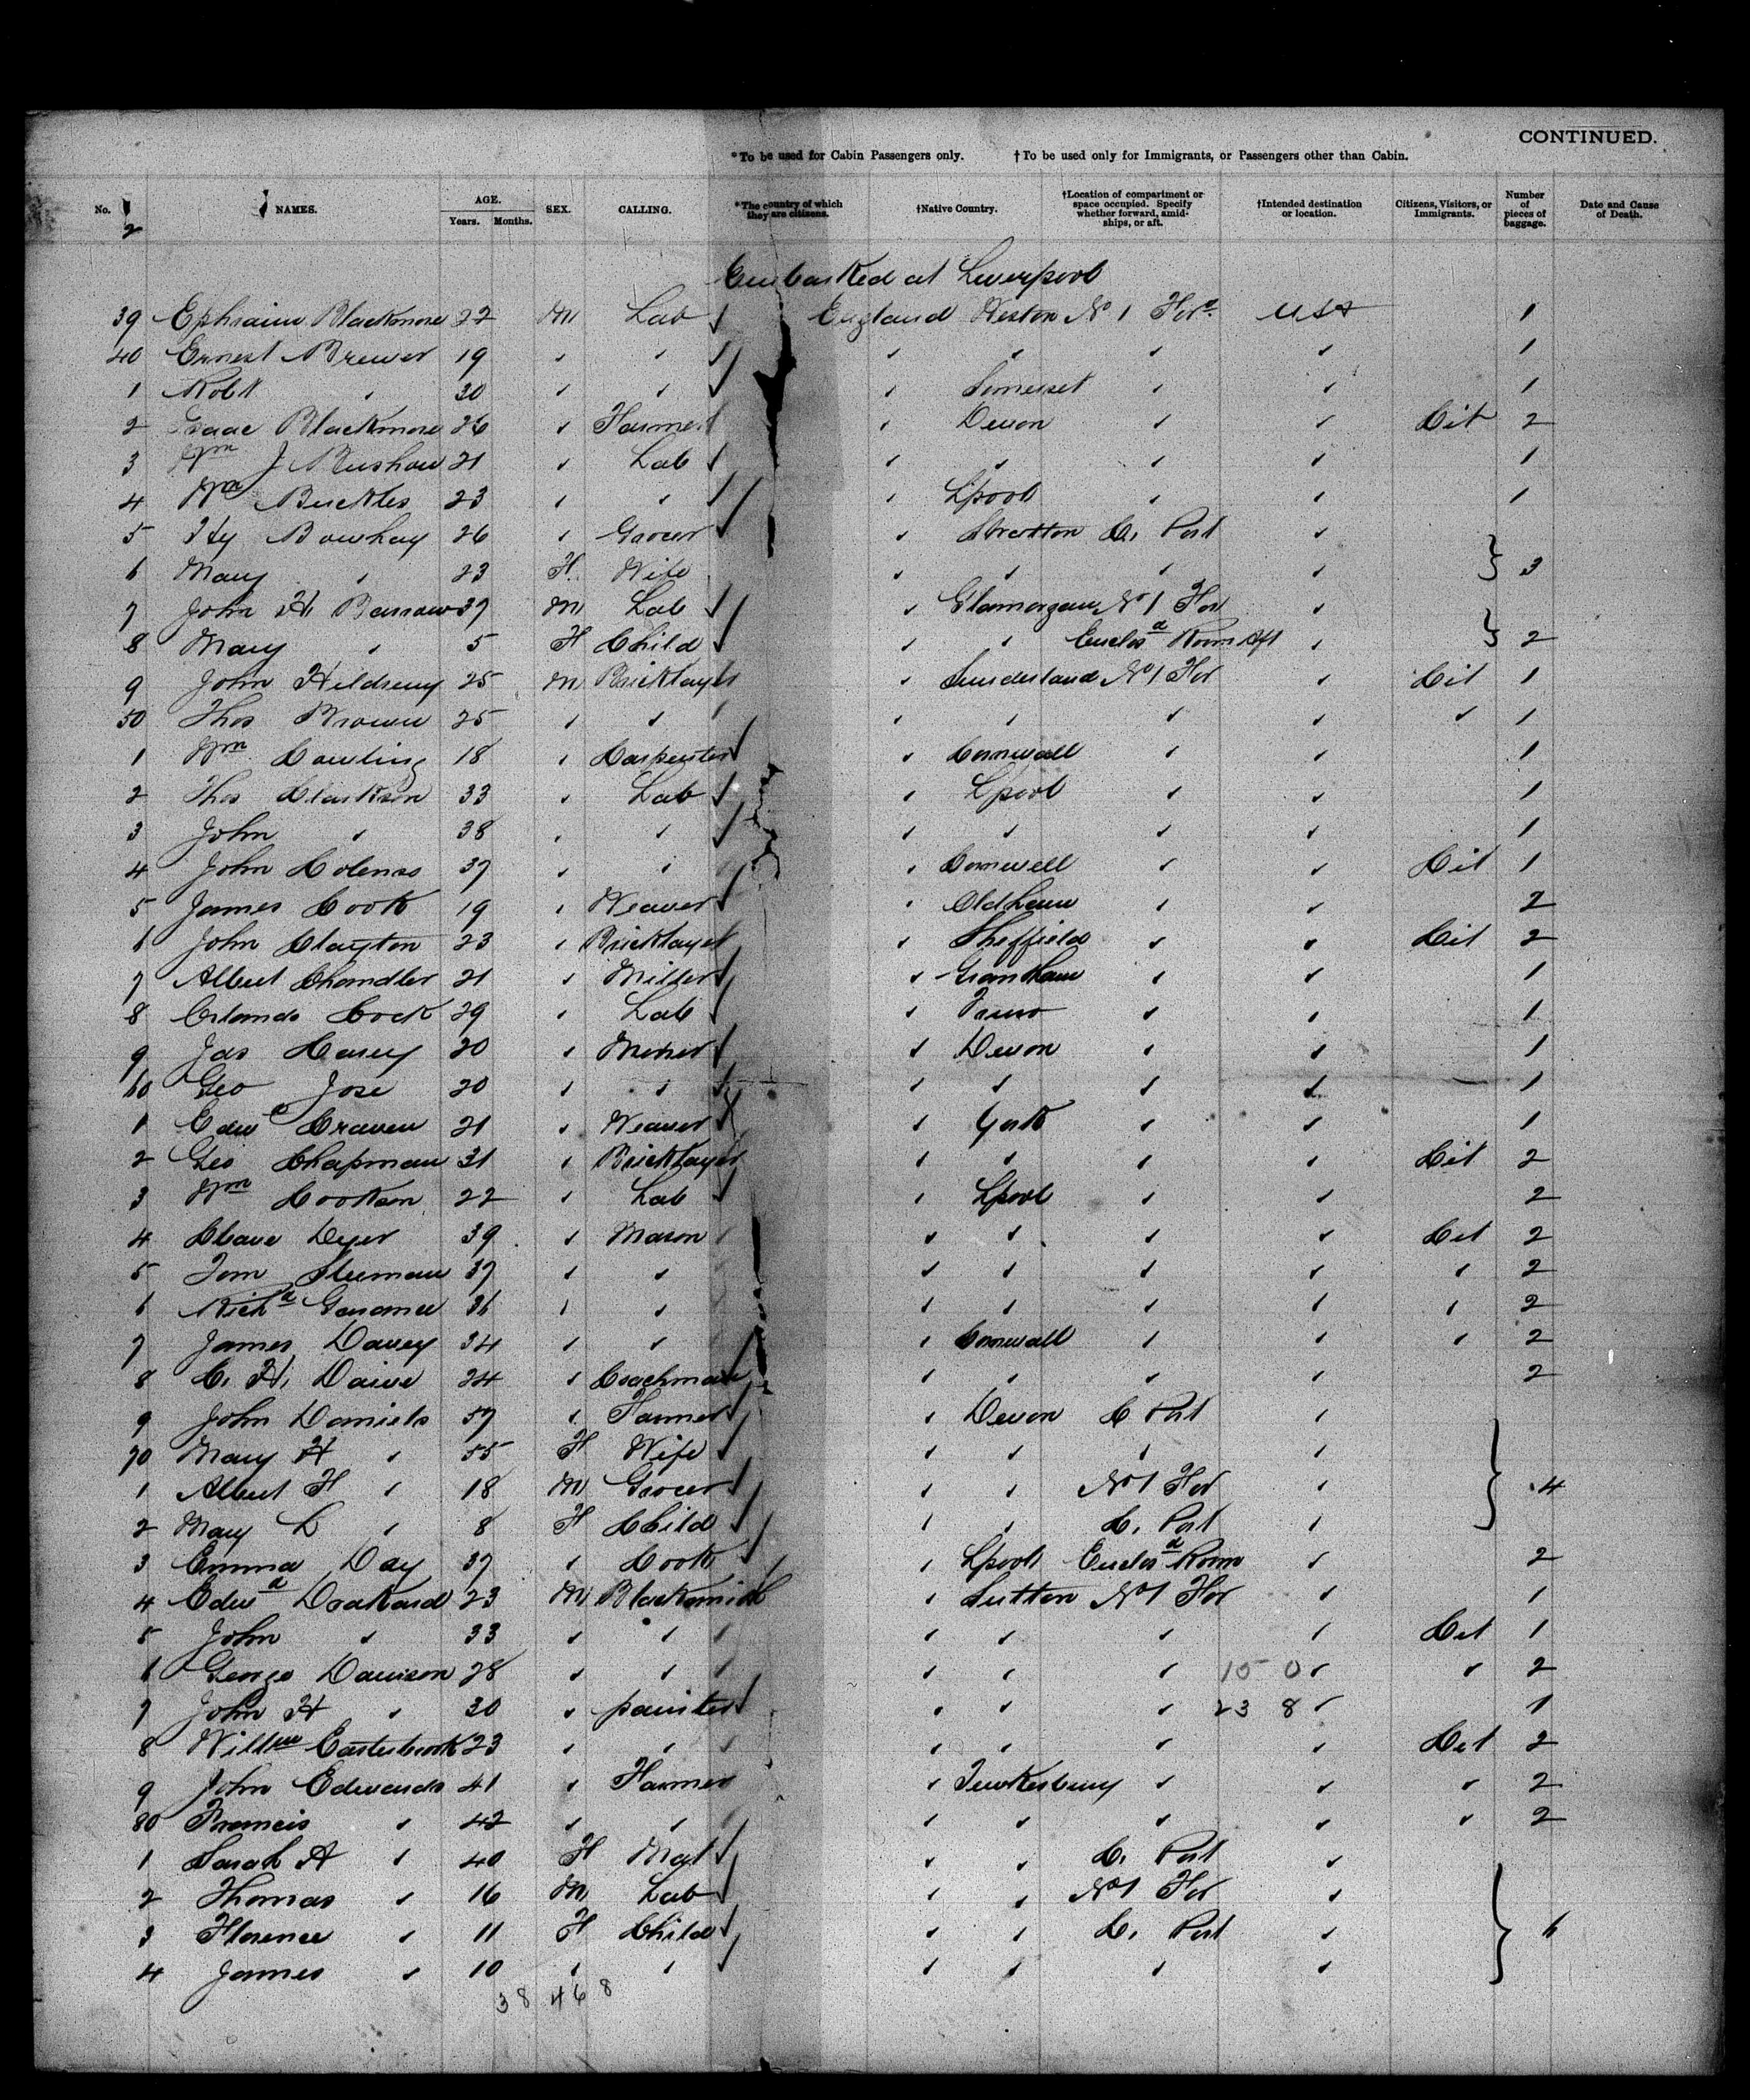 CONTINUED.
*To be used for Cabin Passengers only. †To be used only for Immigrants, or Passengers other than Cabin.
No. NAMES. AGE. Years. Months. SEX. CALLING. *The country of which they are citizens. †Native Country. †Location of compartment or space occupied. Specify whether forward, amidships, or aft. †Intended destination or location. Citizens, Visitors, or Immigrants. Number of pieces of baggage. Date and Cause of Death.
2
Embarked at Liverpool
39 Ephraim Blackmore 22 M Lab ✓ England Weston No 1 For USA 1
40 Ernest Brewer 19 ✓ ✓ ✓ ✓ ✓ ✓ ✓ 1
1 Robt ✓ 30 ✓ ✓ ✓ ✓ Somerset ✓ ✓ 1
2 Isaac Blackmore 26 ✓ Farmer ✓ Devon ✓ ✓ Cit 2
3 Wm J 21 ✓ Lab ✓ ✓ ✓ ✓ ✓ 1
4 Wm Buckles 23 ✓ ✓ ✓ ✓ Lpool ✓ ✓ 1
5 Hy Bowhay 26 ✓ Grocer ✓ ✓ Stratton C. Port ✓
6 Mary ✓ 23 F. Wife ✓ ✓ ✓ ✓ } 3
7 John H. Barrow 37 M Lab ✓ ✓ Glamorgan No 1 For ✓
8 Mary ✓ 5 F Child ✓ ✓ ✓ Enclsd Room Aft ✓ } 2
9 John 25 M Bricklayer ✓ Sunderland No 1 For ✓ Cit 1
50 Thos Brown 25 ✓ ✓ ✓ ✓ ✓ ✓ ✓ ✓ 1
1 Wm Cowling 18 ✓ Carpenter ✓ ✓ Cornwall ✓ ✓ 1
2 Thos Clarkson 33 ✓ Lab ✓ ✓ Lpool ✓ ✓ 1
3 John ✓ 38 ✓ ✓ ✓ ✓ ✓ ✓ ✓ 1
4 John Colenso 37 ✓ ✓ ✓ ✓ Cornwell ✓ ✓ Cit 1
5 James Cook 19 ✓ Weaver ✓ ✓ Oldham ✓ ✓ 2
6 John Clayton 23 ✓ Bricklayer ✓ Sheffield ✓ ✓ Cit 2
7 Albert Chandler 21 ✓ Miller ✓ ✓ Grantham ✓ ✓ 1
8 Orlando Cock 29 ✓ Lab ✓ ✓ Truro ✓ ✓ 1
9 Jas Casey 20 ✓ Miner ✓ ✓ Devon ✓ ✓ 1
60 Geo Jose 20 ✓ ✓ ✓ ✓ ✓ ✓ ✓ 1
1 Edwd Craven 21 ✓ Weaver ✓ ✓ York ✓ ✓ 1
2 Geo Chapman 31 ✓ Bricklayer ✓ ✓ ✓ ✓ Cit 2
3 Wm Cookson 22 ✓ Lab ✓ ✓ Lpool ✓ ✓ 2
4 Dyer 39 ✓ Mason ✓ ✓ ✓ ✓ ✓ Cit 2
5 Tom Sleeman 37 ✓ ✓ ✓ ✓ ✓ ✓ ✓ 2
6 Richd 36 ✓ ✓ ✓ ✓ ✓ ✓ ✓ 2
7 James Davey 34 ✓ ✓ ✓ ✓ Cornwall ✓ ✓ ✓ 2
8 C. H. 24 ✓ Coachman ✓ ✓ ✓ ✓ 2
9 John Daniels 57 ✓ Farmer ✓ ✓ Devon C Port ✓
70 Mary H ✓ 55 F Wife ✓ ✓ ✓ ✓ ✓
1 Albert F ✓ 18 M Grocer ✓ ✓ ✓ No 1 For ✓ } 4
2 Mary L ✓ 8 F Child ✓ ✓ ✓ C. Port ✓
3 Emma Day 37 ✓ Cook ✓ ✓ Lpool Enclsd Room ✓ 2
4 Edwd Drakard 23 M Blacksmith ✓ Sutton No 1 For ✓ 1
5 John ✓ 33 ✓ ✓ ✓ ✓ ✓ ✓ ✓ Cit 1
6 George Davison 28 ✓ ✓ ✓ ✓ ✓ ✓ 15 0 ✓ ✓ 2
7 John H ✓ 30 ✓ painter ✓ ✓ ✓ ✓ 23 8 ✓ 1
8 Willm Easterbrook 23 ✓ ✓ ✓ ✓ ✓ ✓ ✓ Cit 2
9 John Edwards 41 ✓ Farmer ✓ Tewkesbury ✓ ✓ ✓ 2
80 Francis ✓ 42 ✓ ✓ ✓ ✓ ✓ ✓ ✓ ✓ 2
1 Sarah A ✓ 40 F Mat ✓ ✓ ✓ C. Port ✓
2 Thomas ✓ 16 M Lab ✓ ✓ ✓ No 1 For ✓
3 Florence ✓ 11 F Child ✓ ✓ ✓ C. Port ✓ } 6
4 James ✓ 10 ✓ ✓ ✓ ✓ ✓ ✓ ✓
38 46 8